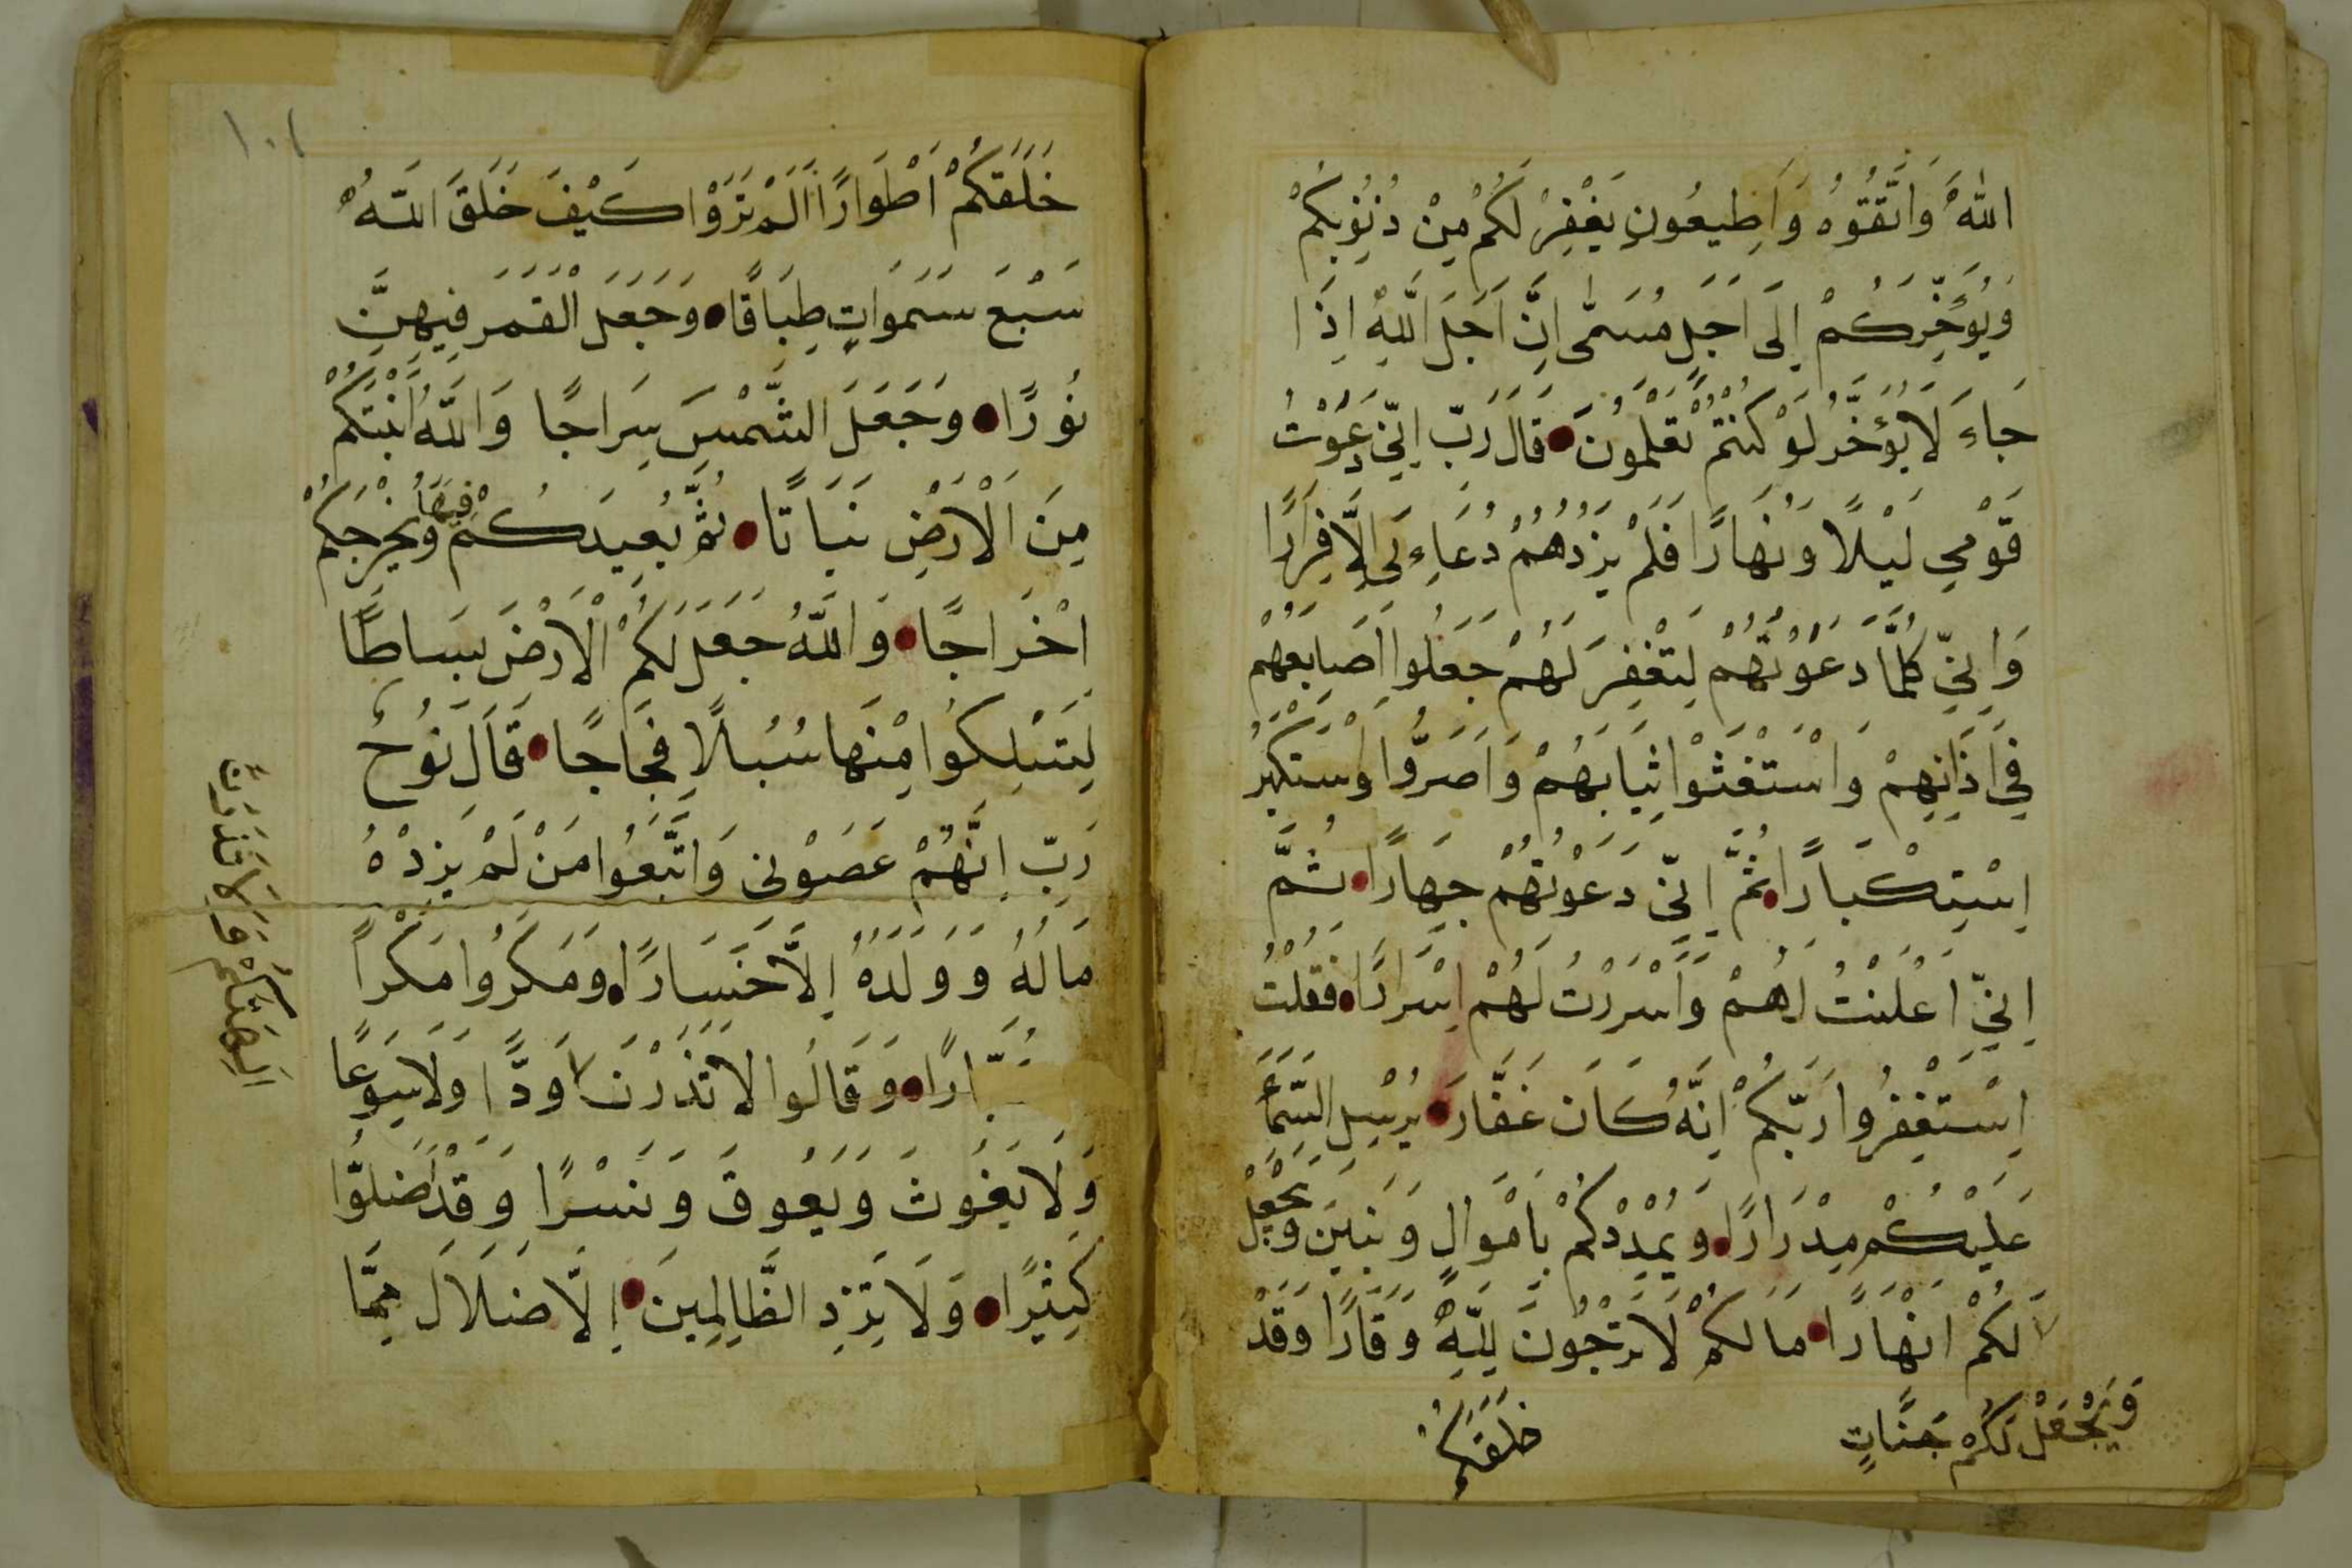 اللهَ وَاتَّقُوهُ وَاَطِيعُونِ يَغْفِرْ لَكُمْ مِنْ ذُنُوبِكُمْ
وَيُؤَخِّرْكُمْ اِلَى اَجَلٍ مُسَمًّى اِنَّ اَجَلَ اللَّهِ اِذَا
جَاءَ لَا يُؤَخَّرُ لَوْ كُنْتُمْ تَعْلَمُونَ قَالَ رَبِّ اِنِّي دَعَوْتُ
قَوْمِي لَيْلًا وَنَهَارًا فَلَمْ يَزِدْهُمْ دُعَاءِي اِلَّا فِرَارًا
وَاِنِّي كُلَّمَا دَعَوْتُهُمْ لِتَغْفِرَ لَهُمْ جَعَلُوا اَصَابِعَهُمْ
فِي اَذَانِهِمْ وَاسْتَغْشَوْا ثِيَابَهُمْ وَاَصَرُّوا وَسْتَكْبَرُ
اِسْتِكْبَارًا ثُمَّ اِنِّي دَعَوْتُهُمْ جِهَارًا ثُمَّ
اِنِّي اَعْلَنْتُ لَهُمْ وَاَسْرَرْتُ لَهُمْ اِسْرَارًا فَقُلْتُ
اِسْتَغْفِرُوا رَبَّكُمْ اِنَّهُ كَانَ غَفَّارَ يُرْسِلِ السَّمَاءَ
عَلَيْكُمْ مِدْرَارًا وَيُمْدِدْكُمْ بِاَمْوَالٍ وَبَنِينَ وَيَجْعَلْ
لَكُمْ اَنْهَارًا مَا لَكُمْ لَا تَرْجُونَ لِلَّهِ وَقَارًا وَقَدْ
وَيَجْعَلْ لَكُمْ جَنَّاتٍ
خَلَقَكُمْ
١٠١
خَلَقَكُمْ اَطْوَارًا اَلَمْ تَرَوْا كَيْفَ خَلَقَ اللهُ
سَبْعَ سَمَوَاتٍ طِبَاقًا وَجَعَلَ الْقَمَرَ فِيهِنَّ
نُورًا وَجَعَلَ الشَّمْسَ سِرَاجًا وَاللَّهُ اَنْبَتَكُمْ
مِنَ الْاَرْضِ نَبَاتًا ثُمَّ يُعِيدُكُمْ فِيهَا وَيُخْرِجُكُمْ
اِخْرَاجًا وَاللَّهُ جَعَلَ لَكُمُ الْاَرْضَ بِسَاطًا
لِتَسْلُكُوا مِنْهَا سُبُلًا فِجَاجًا قَالَ نُوحٌ
رَبِّ اِنَّهُمْ عَصَوْنِي وَاتَّبَعُوا مَنْ لَمْ يَزِدْهُ
مَالُهُ وَوَلَدُهُ اِلَّا خَسَارًا وَمَكَرُوا مَكْرًا
كُبَّارًا وَقَالُوا لَا تَذَرُنَّ وَدًّا وَلَا سُوَعًا
وَلَا يَغُوثَ وَيَعُوقَ وَنَسْرًا وَقَدْ اَضَلُّوا
كَثِيرًا وَلَا تَزِدِ الظَّالِمِينَ اِلَّا ضَلَالَ مِمَّا
اٰلِهَتَكُمْ وَلَا تَذَرُنَّ